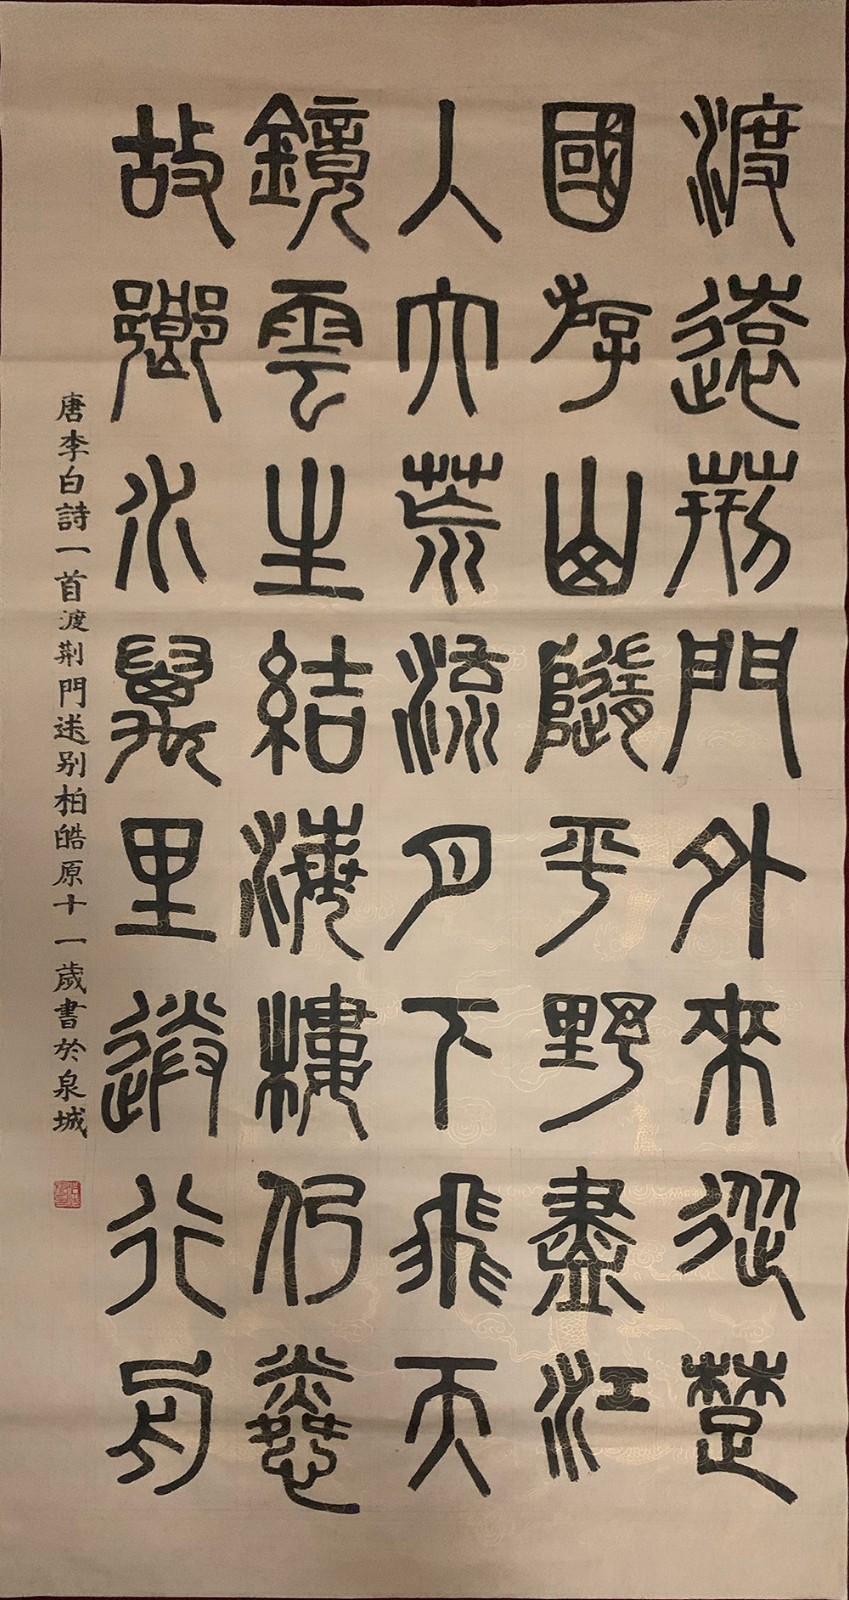 渡遠荊門外來從楚
國游山隨平野盡江
入大荒流月下飛天
鏡雲生結海樓仍憐
故鄉水萬里送行舟
唐李白詩一首渡荆門送别柏皓原十一歲書於泉城